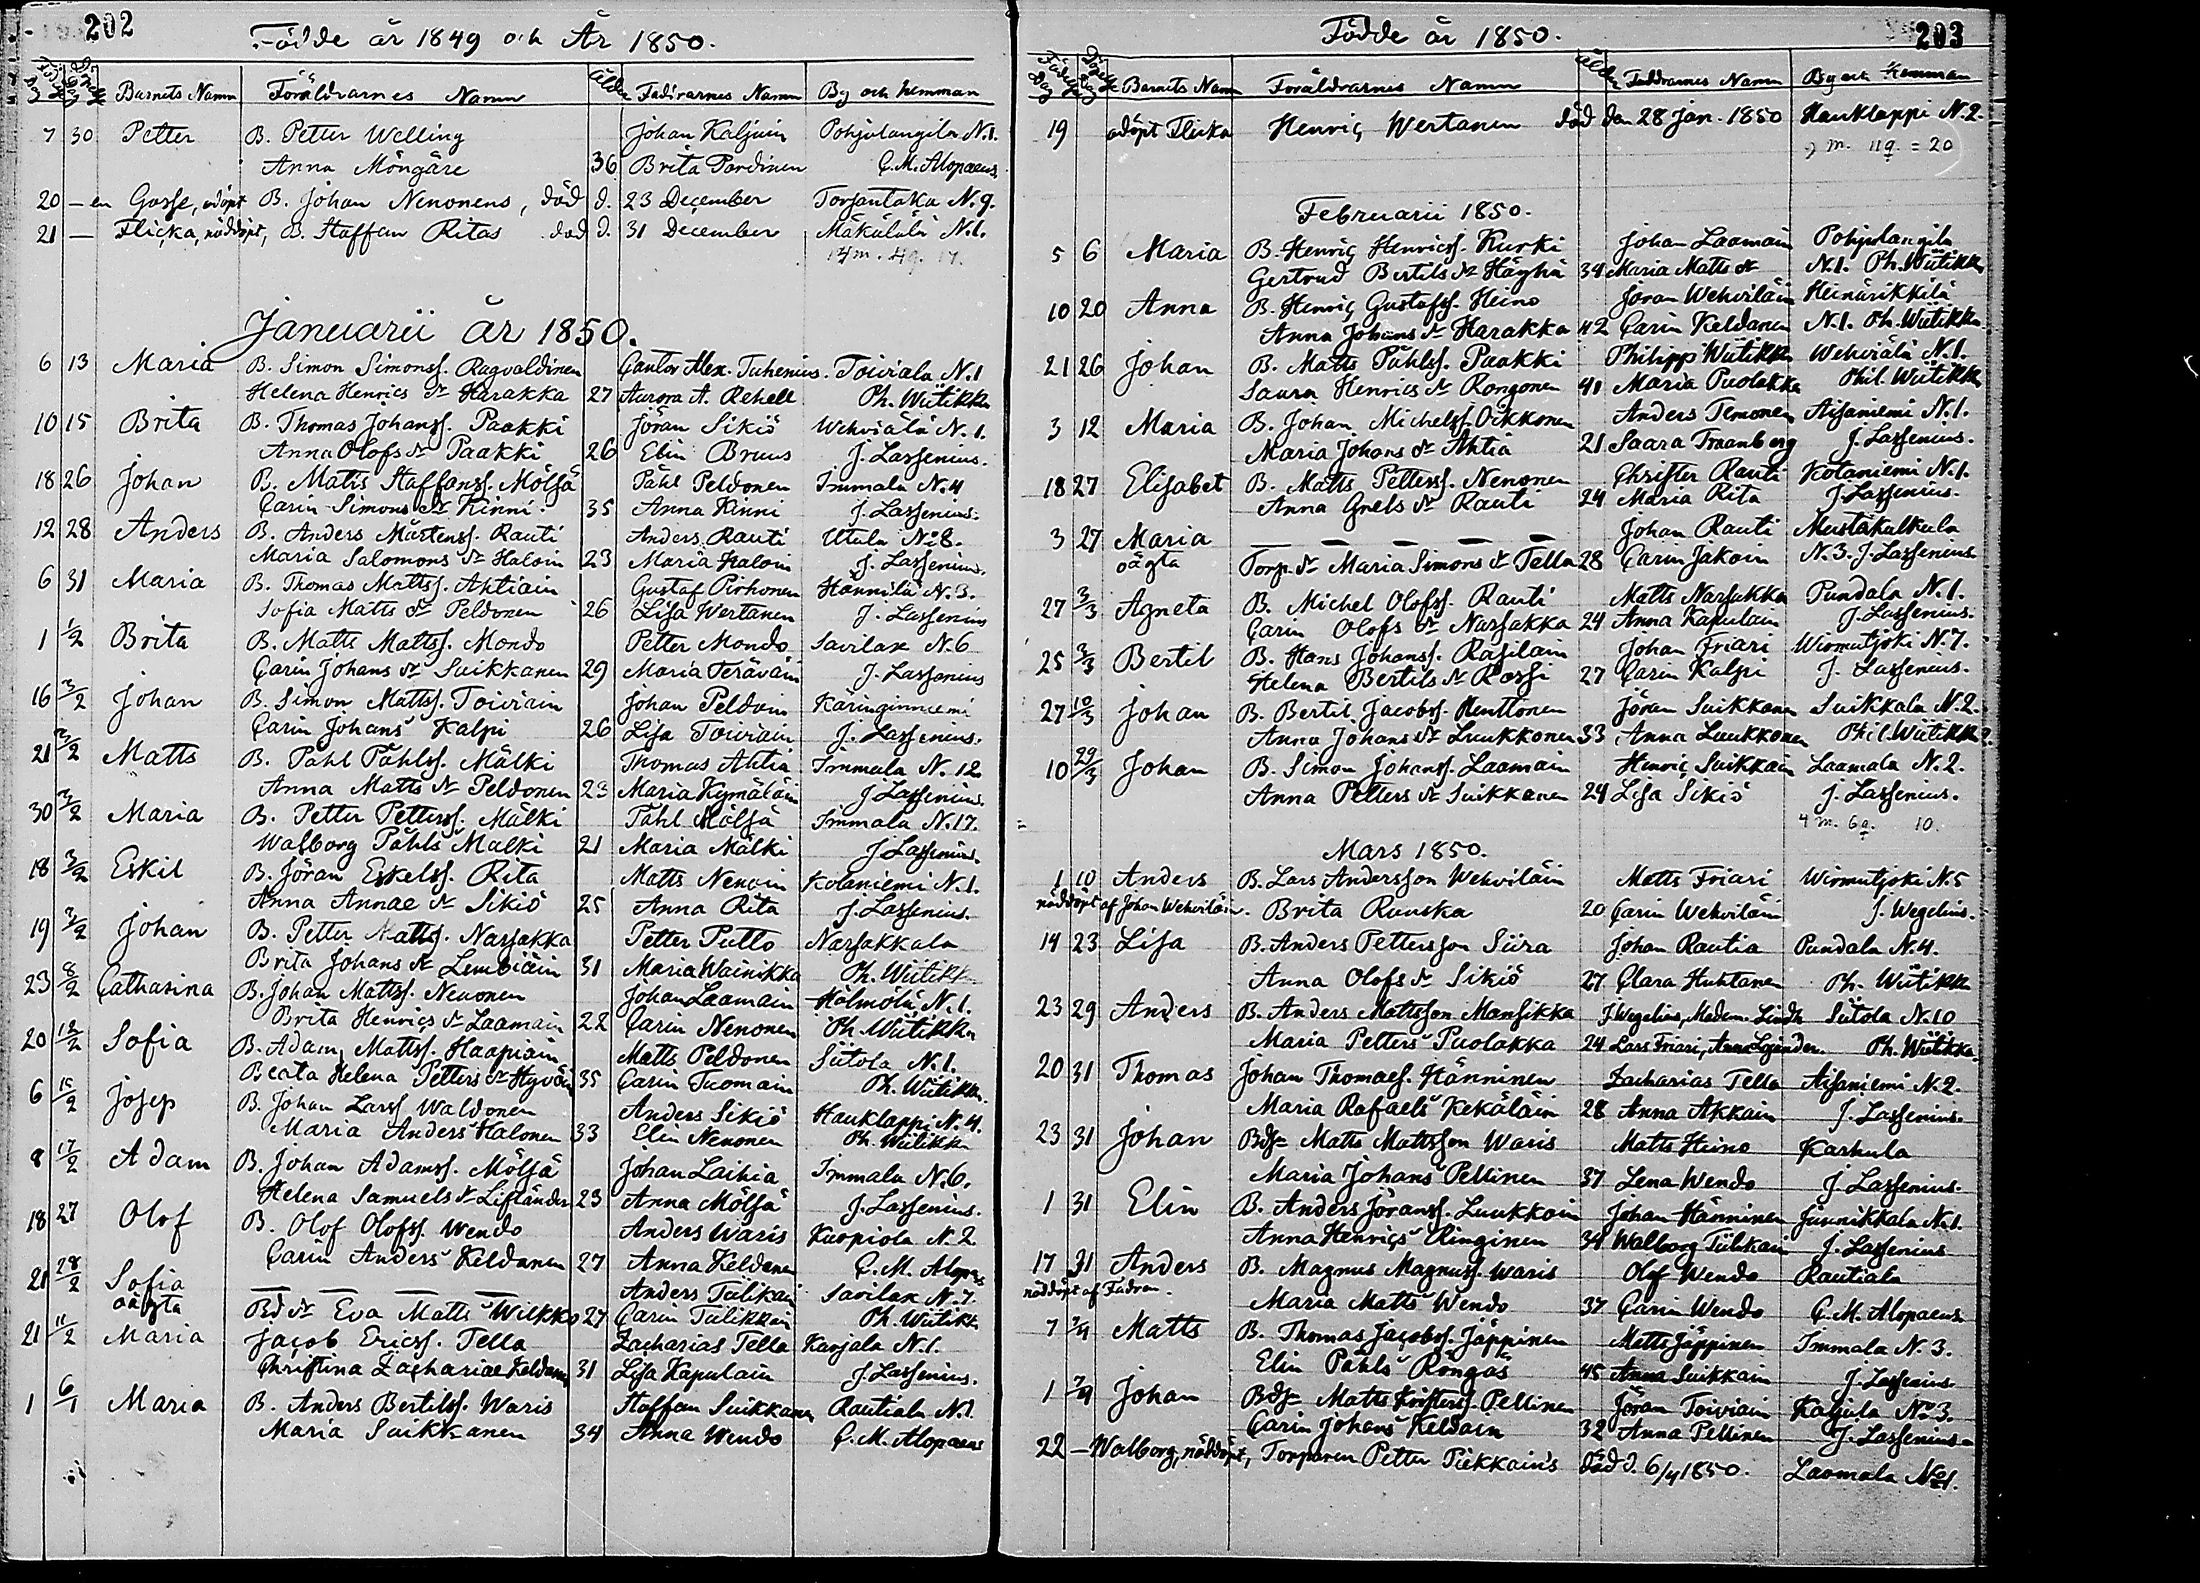 202
Födde år 1849 och År 1850.
Födelse Dag Döpelse Dag Barnets Namn Föräldrarnes Namn Ålder Faddrarnes Namn By och hemman
7 30 Petter B. Petter Welling Johan Kaljuin Pohjalangila N.1.
Anna Möngäre 36 Brita Pardinen C. M. Alopaeus
20 — en Gosse, odöpt B. Johan Nenonens, död d. 23 December Torsantaka N. 9.
21 — Flicka, nöddöpt, B. Staffan Ritas död d. 31 December Mäkälälä N.1.
Januarii år 1850.
6 13 Maria B. Simon Simonss. Ragvaldinen Cantor Alex. Tuhenius. Toiviala N.1
Helena Henrics dr Harakka 27 Aurora A. Rehell Ph. Wiitikka
10 15 Brita B. Thomas Johanss. Paakki Jöran Sikiö Wehviälä N. 1.
Anna Olofs dr Paakki 26 Elin Bruus J. Lassenius.
18 26 Johan B. Matts Staffanss. Mölsä Påhl Peldonen Immala N. 4
Carin Simons dr Kinni 35 Anna Kinni J. Lassenius.
12 28 Anders B. Anders Mårtenss. Rauti Anders Rauti Utula No 8.
Maria Salomons dr Haloin 23 Maria Haloin J. Lassenius.
6 31 Maria B. Thomas Mattss. Ahtiain Gustaf Pirhonen Hännilä N. 3.
Sofia Matts dr Peldonen 26 Lisa Wertanen J. Lassenius
1 1/2 Brita B. Matts Mattss. Mondo Petter Mondo Savilax N. 6
Carin Johans dr Suikkanen 29 Maria Teräväin J. Lassenius
16 3/2 Johan B. Simon Mattss. Toiviain Johan Peldoin Käringinniemi
Carin Johans Kalpi 26 Lisa Toiviain J. Lassenius.
21 3/2 Matts B. Påhl Påhlss. Mälki Thomas Ahtia Immala N. 12
Anna Matts dr Peldonen 23 Maria Kymäläin J Lassenius.
30 3/2 Maria B. Petter Petterss. Mälki Påhl Mölsä Immala N. 17.
Walborg Påhls Mälki 21 Maria Mälki J Lassenius.
18 3/2 Eskil B. Jöran Eskelss. Rita Matts Nenoin Kotaniemi N. 1.
Anna Annae dr Sikiö 25 Anna Rita J. Lassenius.
19 3/2 Johan B. Petter Mattss. Narsakka Petter Putto Narsakkala
Brita Johans dr Lembiäin 31 Maria Wainikka Ph. Wiitikk
23 8/2 Catharina B. Johan Mattss. Nenonen Johan Laamain Hölmölä, N. 1.
Brita Henrics dr Laamain 22 Carin Nenonen Ph. Wiitikka
20 12/2 Sofia B. Adam Mattss. Haapiain Matts Peldonen Siitola N. 1.
Beata Helena Petters dr Hyvön 35 Carin Tuomain Ph. Wiitikka.
6 15/2 Josep B. Johan Larss Waldonen Anders Sikiö Hauklappi N. 4.
Maria Anders Halonen 33 Elin Nenonen Ph. Wiitikka
8 17/2 Adam B. Johan Adamss. Mölsä Johan Laihia Immala N. 6.
Helena Samuels dr Lifländer 23 Anna Mölsä J. Lassenius.
18 27 Olof B. Olof Olofss. Wendo Anders Waris Kuopiola N. 2
Carin Anders Keldanen 27 Anna Keldanen C. M. Alopaeus
21 28/2 Sofia — — — — Anders Tiilikain Savilax N. 7.
oägta Bd dr Eva Matts Wilkko 27 Carin Tiilikkain Ph. Wiitikk
21 11/2 Maria Jacob Ericss. Tella Zacharias Tella Karjala N. 1.
Christina Zachariae Keldanen 31 Lisa Kapulain J. Lassenius.
1 6/1 Maria B. Anders Bertilss. Waris Staffan Suikkanen Rautiala N. 1.
Maria Suikkanen 34 Anna Wendo C. M. Alopaeus
203
Födde år 1850.
Födelse Dag Döpelse Dag Barnets Namn Föräldrarnes Namn Ålder Faddrarnes Namn By och Hemman
19 odöpt Flicka Henric Wertanen död den 28 Jan. 1850 Hauklappi N. 2.
9 m. 11 q. = 20
Februarii 1850.
5 6 Maria B. Henric Henricss. Kurki Johan Laamain Pohjalangila
Gertrud Bertils dr Häyhä 34 Maria Matts dr N. 1. Ph. Wiitikka
10 20 Anna B. Henric Gustafss. Heino Jöran Wehviläin Heinärikkilä
Anna Johans dr Harakka 42 Carin Keldanen N. 1. Ph. Wiitikka
21 26 Johan B. Matts Påhlss. Paakki Philipp Wiitikka Wehviälä N. 1.
Saura Henrics dr Rongonen 41 Maria Puolakka Phil. Wiitikka
3 12 Maria B. Johan Michelss. Oikkonen Anders Temonen Aisaniemi N. 1.
Maria Johans dr Ahtia 21 Saara Traanberg J. Lassenius.
18 27 Elisabet B. Matts Petterss. Nenonen Christer Rauti Kotaniemi N. 1.
Anna Grels dr Rauti 24 Maria Rita J. Lassenius.
3 27 Maria — — — — Johan Rauti Mustäkulkula
oägta Torp. dr Maria Simons dr Tella 28 Carin Jakoin N. 3. J. Lassenius
27 3/3 Agneta B. Michel Olofss. Rauti Matts Narsakka Pundala N. 1.
Carin Olofs dr Narsakka 24 Anna Kapulain J. Lassenius.
25 3/3 Bertil B. Hans Johanss. Rasilain Johan Friari Wirmutjoki N. 7.
Helena Bertils dr Rossi 27 Carin Kalpi J. Lassenius.
27 10/3 Johan B. Bertil Jacobss. Henttonen Jöran Suikkanen Suikkala N. 2.
Anna Johans dr Luukkonen 33 Anna Luukkonen Phil. Wiitikka
10 29/3 Johan B. Simon Johanss. Laamain Henric Suikkain Laamala N. 2.
Anna Petters dr Suikkanen 24 Lisa Sikiö J. Lassenius.
4 m. 6 q. 10.
Mars 1850.
1 10 Anders B. Lars Andersson Wehviläin Matts Friari Wirmutjoki N. 5
nöddöpt af Johan Wehviläin. Brita Ruuska 20 Carin Wehviläin J. Wegelius.
14 23 Lisa B. Anders Pettersson Siira Johan Rautia Pundala N. 4.
Anna Olofs dr Sikiö 27 Clara Huhtanen Ph. Wiitikka
23 29 Anders B. Anders Mattsson Mansikka J. Wegelius, Madem. Lindh Siitola N. 10
Maria Petters Puolakka 24 Lars Friari, Anna Ph. Wiitikka.
20 31 Thomas Johan Thomaes. Hänninen Zacharias Tella Aisaniemi N. 2.
Maria Rafaels Kekäläin 28 Anna Akkain J. Lassenius.
23 31 Johan Matts Mattsson Waris Matts Heino Karhula
Maria Johans Pellinen 37 Lena Wendo J. Lassenius.
1 31 Elin B. Anders Jöranss. Luukkoin Johan Hänninen Juunikkala N. 1.
Anna Henrics Ringinen 34 Walborg Tiilikain J. Lassenius
17 31 Anders B. Magnus Magnuss. Waris Olof Wendo Rautiala
nöddöpt af Fadren. Maria Matts Wendo 37 Carin Wendo C. M. Alopaeus
7 7/4 Matts B. Thomas Jacobss. Jäppinen Matts Jäppinen Immala N. 3.
Elin Påhls Röngas 45 Anna Suikkain J. Lassenius.
1 7/4 Johan Matts Kristerss. Pellinen Jöran Toiviain Karjula No 3.
Carin Johans Keldain 32 Anna Pellinen J. Lassenius.
22 — Walborg, nöddöpt, Torparen Petter Piekkain's död d. 6/4 1850. Laamala No 1.